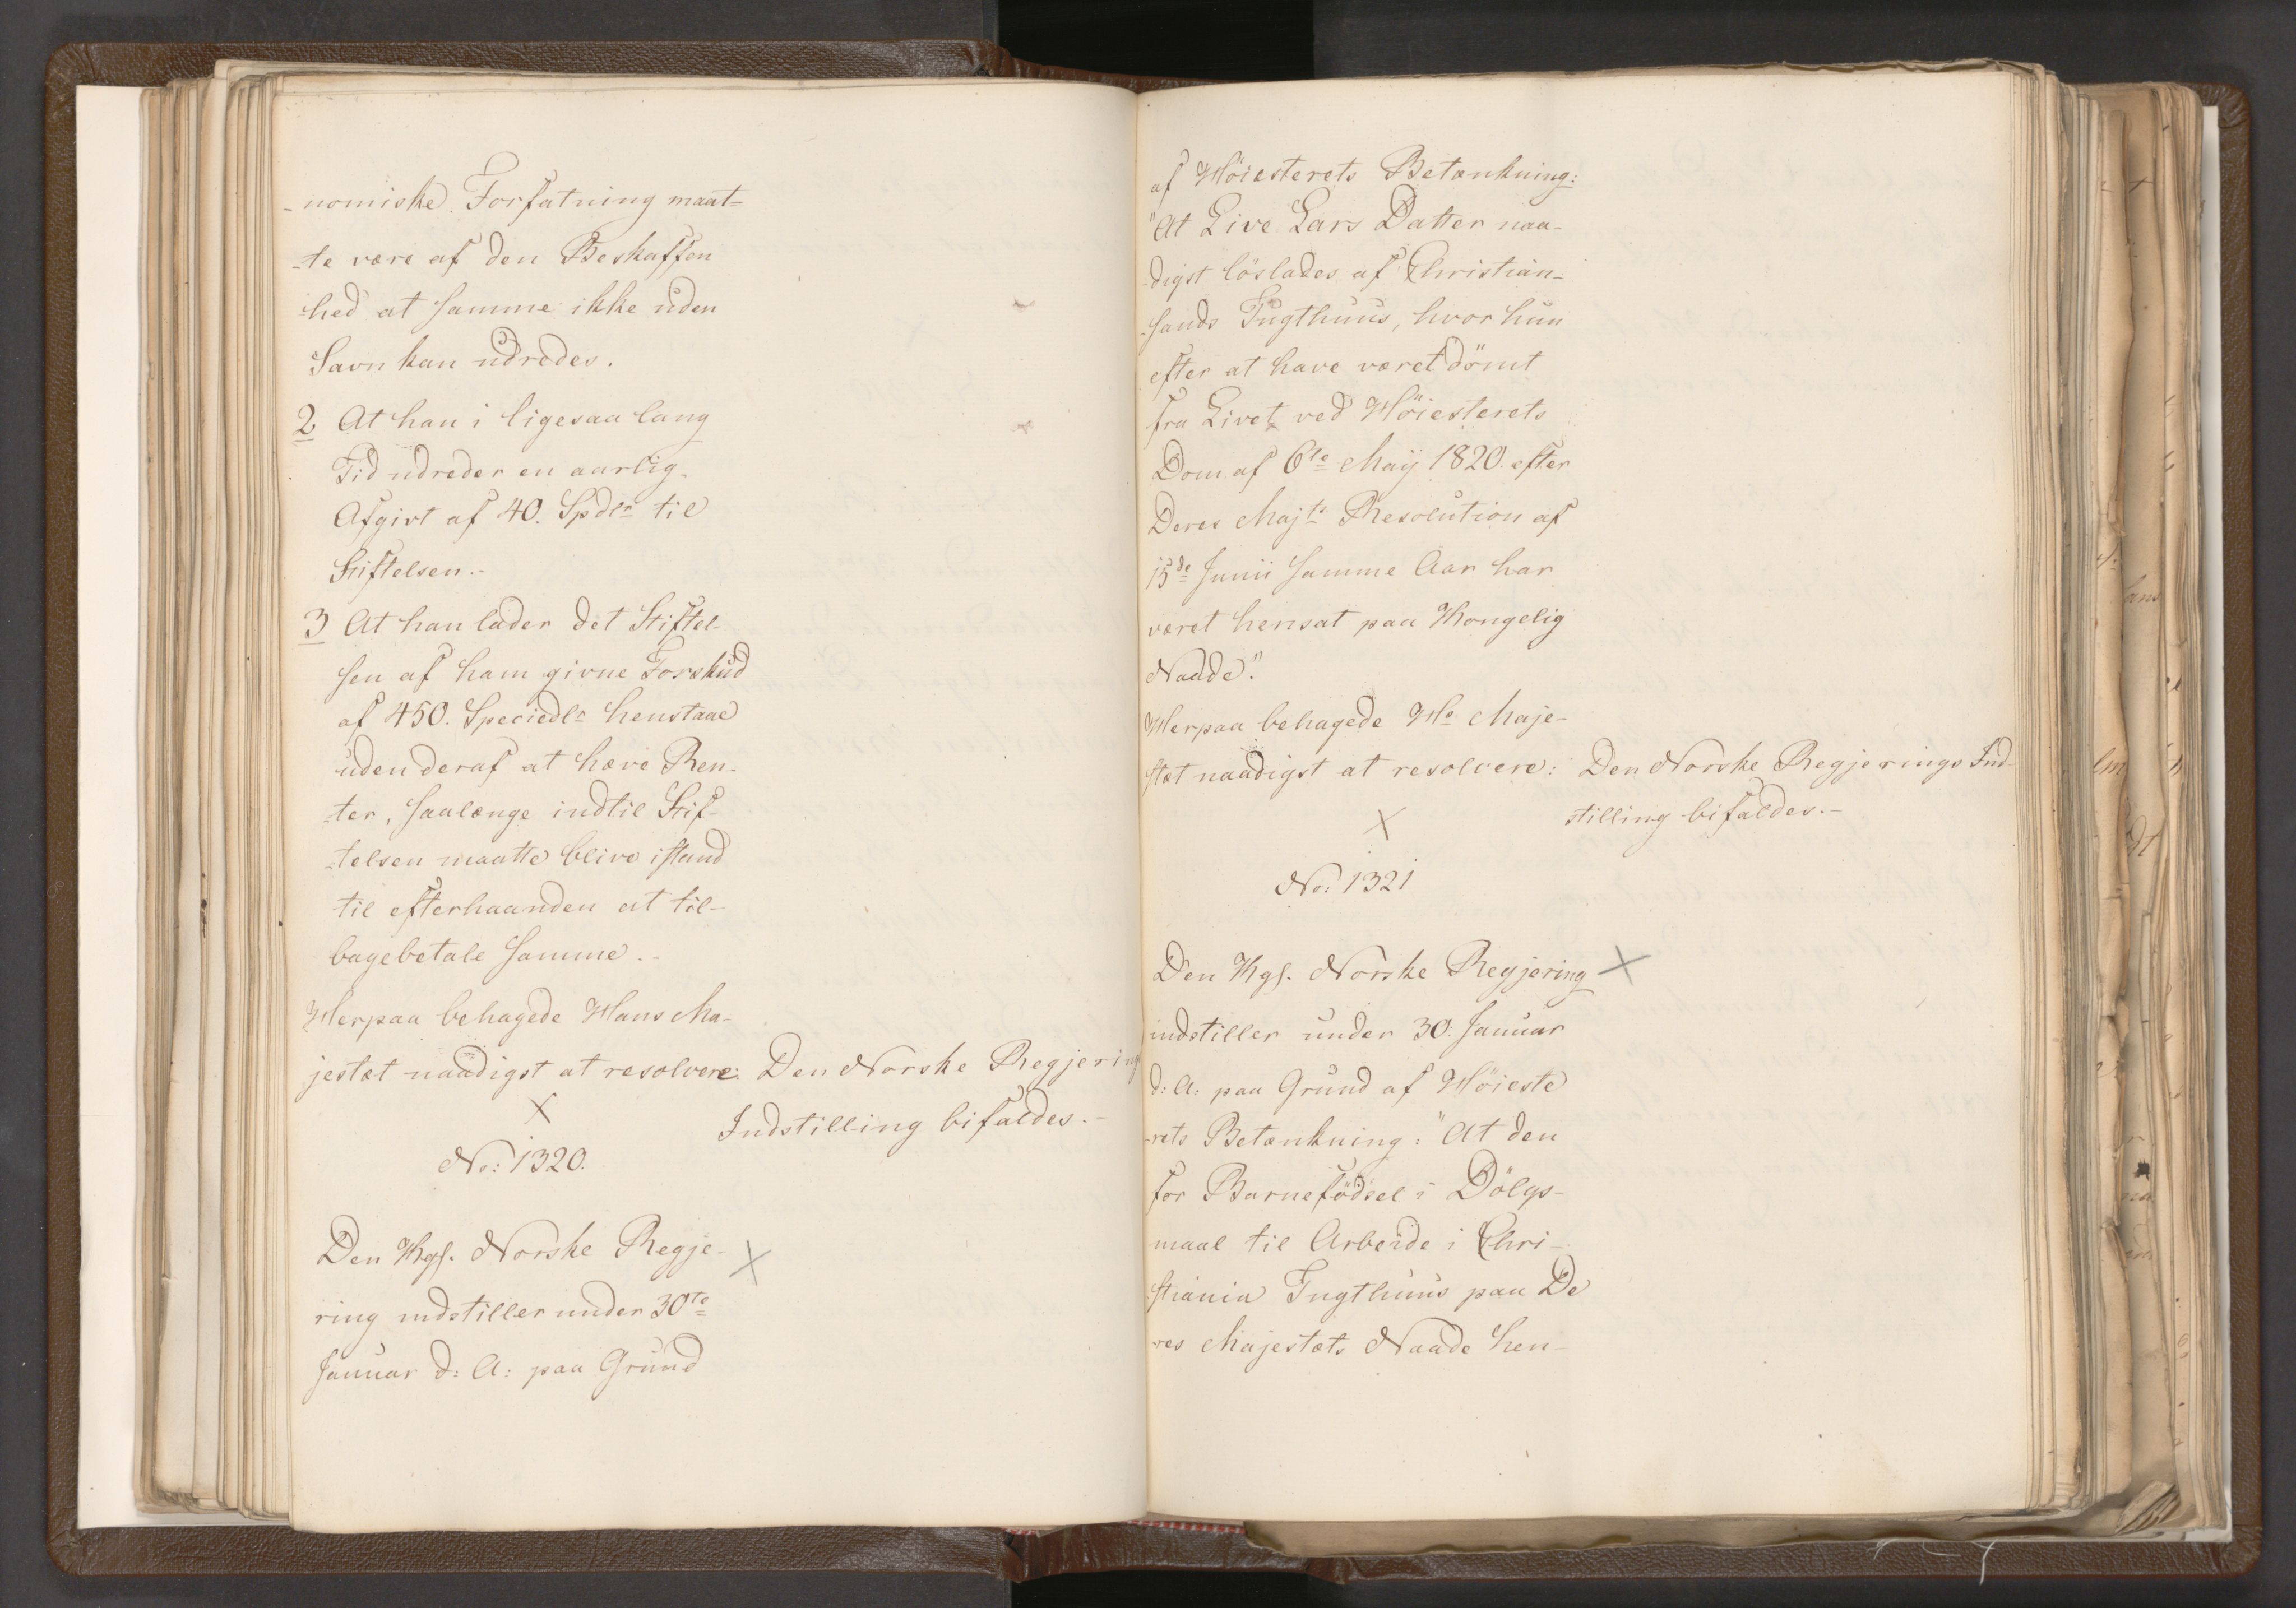 -nomiske Forfatning maat-
-te være af den Beskaffen
-hed at samme ikke uden
Savn kan udredes.
2 At han i ligesaa lang
Tid udreder en aarlig
Afgivt af 40. Spdlr til
Stiftelsen.-
3 At han lader det Stiftel-
sen af ham givne Forskud
af 450. Speciedlr henstaae
uden deraf at hæve Ren-
-ter, saalænge indtil Stif-
-telsen maatte blive istand
til efterhaanden at til-
bagebetale samme.-
Herpaa behagede Hans Ma-
jestæt naadigst at resolvere: Den Norske Regjerings
Indstilling bifaldes.-
No: 1320.
Den Kgs. Norske Regje-
ring indstiller under 30te
Januar d: A: paa Grund
af Höiesterets Betænkning:
"At Live Lars Datter naa-
-digst löslades af Christian-
-sands Tugthuus, hvor hun
efter at have været dömt
fra Livet ved Höiesterets
Dom af 6te Maij 1820. efter
Deres Majts Resolution af
15de Junii samme Aar har
været hensat paa Kongelig
Naade".
Herpaa behagede Hs Maje-
stæt naadigst at resolvere: Den Norske Regjerings Ind-
stilling bifaldes.-
No: 1321
Den Kgs. Norske Regjering
indstiller under 30. Januar
d: A: paa Grund af Höieste
-rets Betænkning: "At den
for Barnefödsel i Dölgs-
maal til Arbeide i Chri-
stiania Tugthuus paa De
res Majestæts Naade hen-